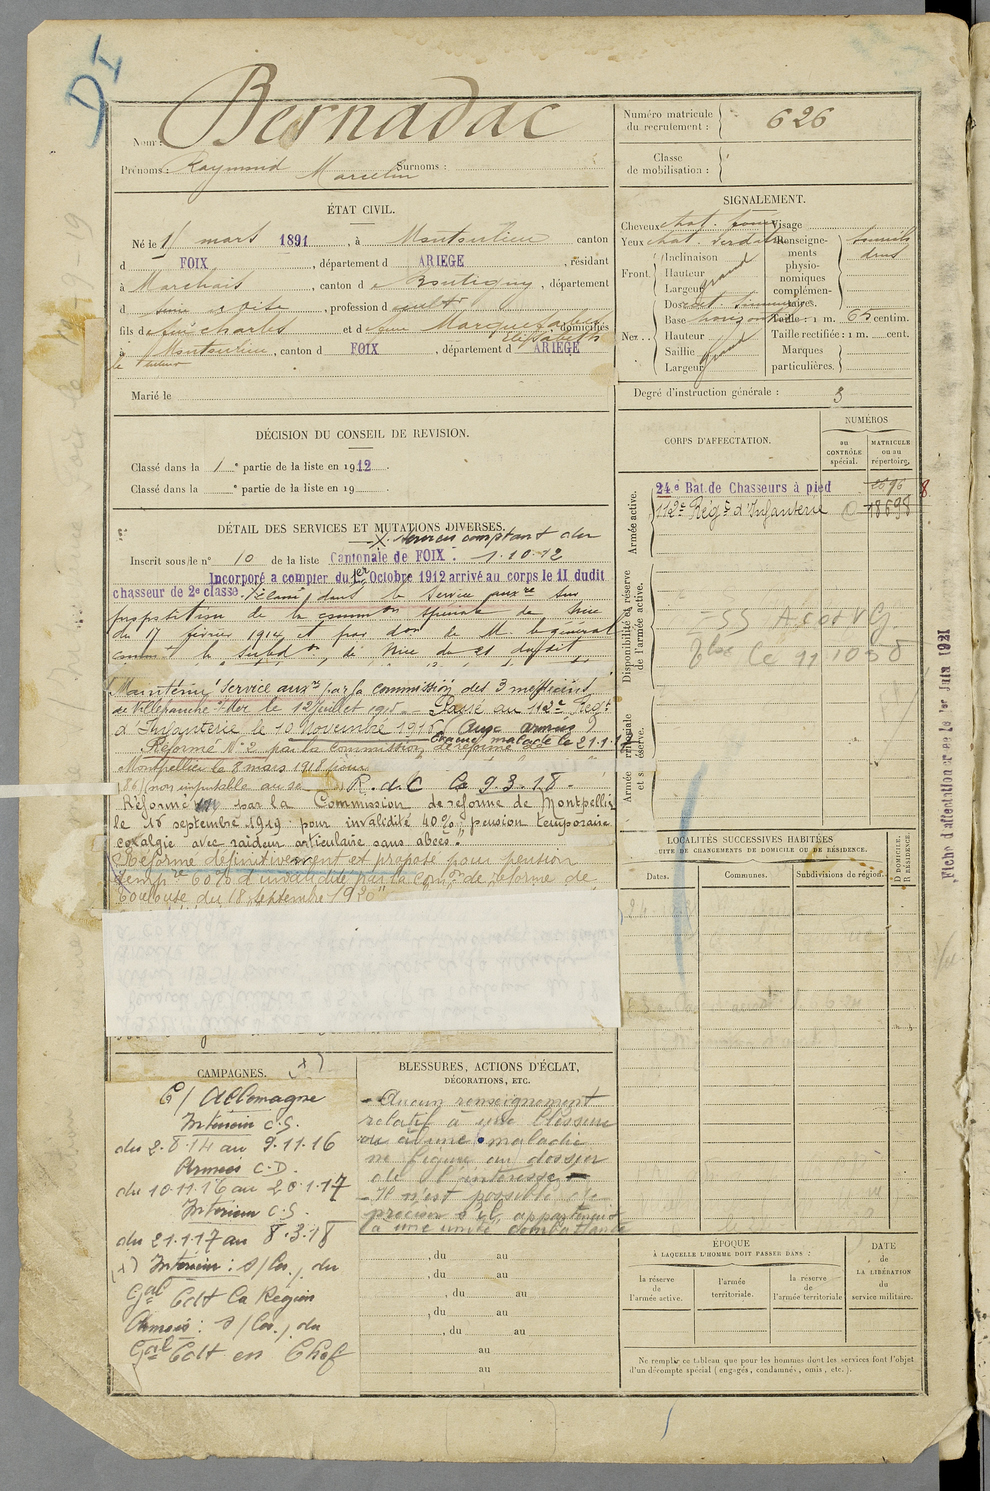 DI
Nom : Bernadac
Prénoms : Raymond Marcelin Surnoms :
Numéro matricule du recrutement : 626
Classe de mobilisation :
ÉTAT CIVIL.
Né le 1 mars 1891, à Montoulieu canton
d FOIX, département d ARIEGE, résidant
à Marchais, canton de Boutigny, département
d seine et oise, profession de cult
fils de feu charles et de feue Marquefabes Elisabeth, domiciliés
à Montoulieu, canton d FOIX, département d ARIEGE
le tuteur
Marié le
SIGNALEMENT.
Cheveux chat.
Yeux chat. verdatre
Front. Inclinaison
Hauteur
Largeur grand
Nez. Dos
Base horizontale
Hauteur
Saillie
Largeur grand
Visage
Renseignements physionomiques complémentaires.
sourcils drus
Taille : 1 m. 65 centim.
Taille rectifiée : 1 m. cent.
Marques particulières.
Degré d'instruction générale : 3
DÉCISION DU CONSEIL DE REVISION.
Classé dans la 1 e partie de la liste en 1912
Classé dans la e partie de la liste en 19
CORPS D'AFFECTATION.
NUMÉROS
au CONTRÔLE spécial.
MATRICULE ou au répertoire.
Armée active.
24e Bat. de Chasseurs à pied
112e Régt d'Infanterie
Disponibilité et réserve de l'armée active.
Armée territoriale et sa réserve.
DÉTAIL DES SERVICES ET MUTATIONS DIVERSES.
services comptant du
Inscrit sous le n° 10 de la liste Cantonale de FOIX. 1.10.12
Incorporé a compter du 1er Octobre 1912 arrivé au corps le 11 dudit
chasseur de 2e classe. Classé dans le service auxre sur
proposition de la common spéciale de Nice
du 17 février 1914 et par don de M. le général
commt la Subdon de Nice du 21 dudit
Maintenu Service auxre par la commission des 3 médecins
de Villefranche s/Mer le 12 Juillet 1915. Passé au 112e Régt
d'Infanterie le 10 Novembre 1916 Aux armées
Evacué malade le 21.1.17
Réformé N° 2 par la commission de réforme de
Montpellier le 8 mars 1918 pour
non imputable au se R. d. C le 9.3.18.
Réformé par la Commission de réforme de Montpellier
le 15 septembre 1919 pour invalidité 40% pension temporaire
coxalgie avec raideur articulaire sans abcès."
Réformé définitivement et proposé pour pension
tempre 60% d'invalidité par la comon de réforme de
Toulouse du 18 septembre 1920
LOCALITÉS SUCCESSIVES HABITÉES
PAR SUITE DE CHANGEMENTS DE DOMICILE OU DE RÉSIDENCE.
Dates.
Communes.
Subdivisions de région.
D DOMICILE. R RÉSIDENCE.
Fiche d'affectation créée le 1er Juin 1921
CAMPAGNES. (x)
C/ Allemagne
Intérieur C.S.
du 2.8.14 au 9.11.16
Armées C.D.
du 10.11.16 au 20.1.17
Intérieur C.S.
du 21.1.17 au 8.3.18
(x) Intérieur : s/les. du
Gal Cdt la Région
Armées : s/les. du
Gal Cdt en Chef
BLESSURES, ACTIONS D'ÉCLAT,
DÉCORATIONS, ETC.
- Aucun renseignement
relatif à une blessure
ou à une maladie
ne figure au dossier
de l'intéressé -
- Il n'est possible de
préciser s'il appartenait
à une unité combattante
, du au
, du au
, du au
, du au
, du au
au
au
ÉPOQUE
À LAQUELLE L'HOMME DOIT PASSER DANS :
la réserve de l'armée active.
l'armée territoriale.
la réserve de l'armée territoriale
DATE de LA LIBÉRATION du service militaire.
Ne remplir ce tableau que pour les hommes dont les services font l'objet
d'un décompte spécial (engagés, condamnés, omis, etc.).